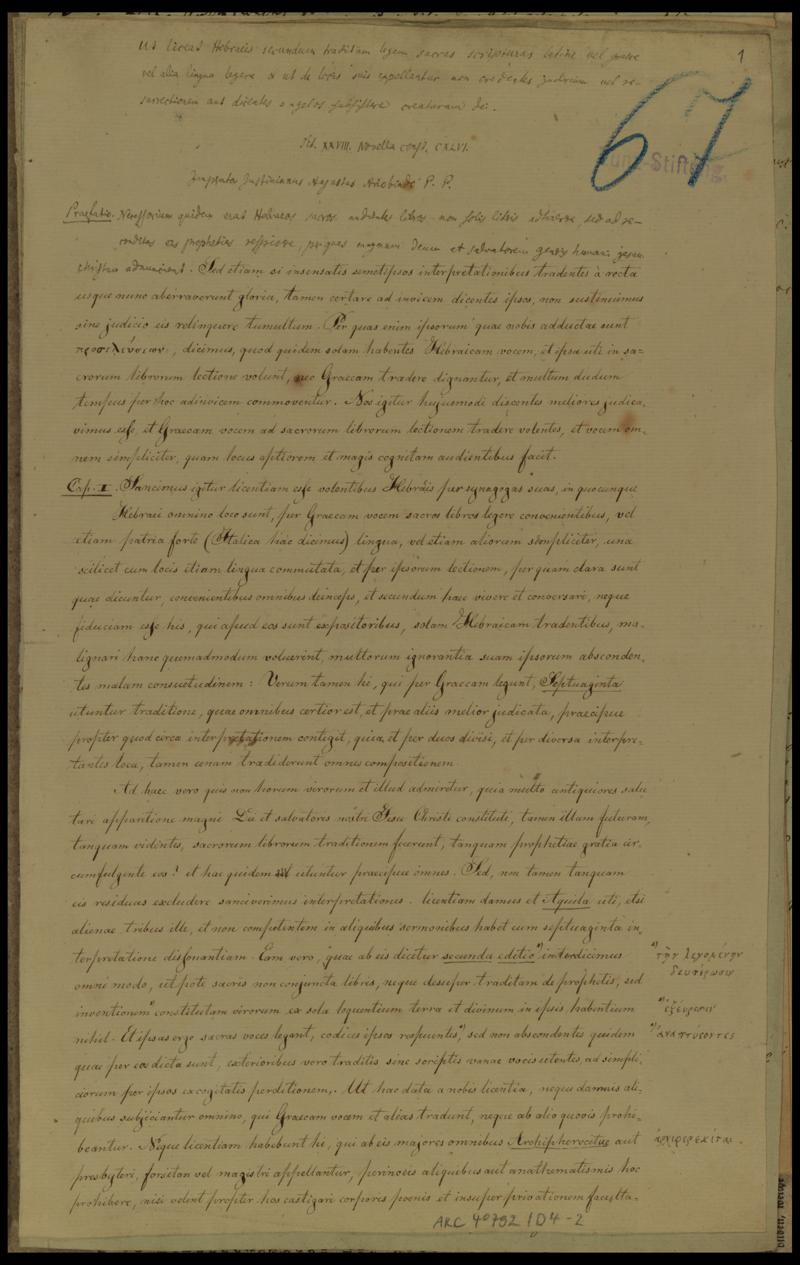 1
Ut liceat Hebraeis secundum traditam legem sacras scripturas latine vel graece
vel alia lingua legere & ut de locis suis expellantur non credentes judicium vel re-
surrectionem aut dicentes angelos subsistere creaturam dei.
67
Zunz-Stiftung.
Tit. XXVIII. Novella const. CXLVI.
Imperator Justinianus Augustus Areobindo P. P.
Praefatio. Necessarium quidem erat Hebraeos sacros audientes libros non solis litteris adhaerere, sed ad re-
conditas eis prophetias respicere, per quas magnum Deum et salvatorem generis humani jesum
christum adnunciant. Sed etiam si insensatis semetipsos interpretationibus tradentes à recta
usque nunc aberraverunt gloria, tamen certare ad invicem dicentes ipsos, non sustinuimus
sine judicio eis relinquere tumultum. Per quas enim ipsorum quae nobis adductae sunt
προσελεύσεων, dicimus, quod quidem solam habentes Hebraicam vocem, et ipsa uti in sa-
crorum librorum lectione volunt, nec Graecam tradere dignantur, et multum dudum
tempus per hoc adinvicem commoventur. Nos igitur hujusmodi discentes meliores judica-
vimus esse, et Graecam vocem ad sacrorum librorum lectionem tradere volentes, et vocem om-
nem simpliciter, quam locus aptiorem et magis cognitam audientibus facit.
Cap. I. Sancimus igitur licentiam esse volentibus Hebraeis per synagogas suas, in quocunque
Hebraei omnino loco sunt, per Graecam vocem sacros libros legere convenientibus, vel
etiam patria forte (Italica hac dicimus) lingua, vel etiam aliorum simpliciter, una
scilicet cum locis etiam lingua commutata, et per ipsorum lectionem, per quam clara sunt
quae dicuntur, convenientibus omnibus deinceps, et secundum haec vivere et conversari, neque
fiduciam esse his, qui apud eos sunt expositoribus, solam Hebraicam tradentibus, ma-
lignari hanc quemadmodum voluerint, multorum ignorantia suam ipsorum absconden-
tes malam consuetudinem: Verum tamen hi, qui per Graecam legunt, Septuaginta
utuntur traditione, quae omnibus certior est, et prae aliis melior judicata, praecipue
propter quod circa interpretationem contigit, quia, et per duos divisi, et per diversa interpre-
tantes loca, tamen unam tradiderunt omnes compositionem.
Ad haec vero quis non horum virorum et illud admiretur, quia multo antiquiores salu-
tari apparitione magni Dei et salvatores nostri Jesu Christi constituti, tamen illum futuram,
tanquam videntes, sacrorum librorum traditionem fecerunt, tanquam prophetiae gratia cir-
cumfulgente eos? et hac quidem utuntur praecipue omnes. Sed, non tamen tanquam
eis residuas excludere sanciverimus interpretationes, licentiam damus et Aquila uti, etsi
alienae tribus ille, et non competentem in aliquibus sermonibus habet cum septuaginta in-
terpretatione dissonantiam. Eam vero, quae ab eis dicitur secunda editio a) interdicimus
a) τὴν λεγομένην
δευτέρωσιν
omni modo, utpote sacris non conjuncta libris, neque desuper traditam de prophetis, sed
inventionem constitutam virorum ex sola loquentium terra et divinum in ipsis habentium
ἐξεύρεσιν
nihil. Et ipsas ergo sacras voces legant, codices ipsos respuentes, sed non abscondentes quidem
ἀναπτύσοντες
quae per eos dicta sunt, exterioribus vero traditis sine scriptis vanae vocis utentes, ad simpli-
ciorum per ipsos excogitatis perditionem,. Ut hac data a nobis licentia, neque damnis ali-
quibus subjiciantur omnino, qui Graecam vocem et alias tradunt, neque ab alio quovis prohi-
beantur. Neque licentiam habebunt hi, qui ab eis majores omnibus Archipherecitae aut
ἀρχιφερεκίται.
presbyteri, forsitan vel magistri appellantur, perinoeis aliquibus aut anathematismis hoc
prohibere, nisi velint propter has castigari corporis poenis et insuper privationem faculta-
ARC 4º792 / D4-2